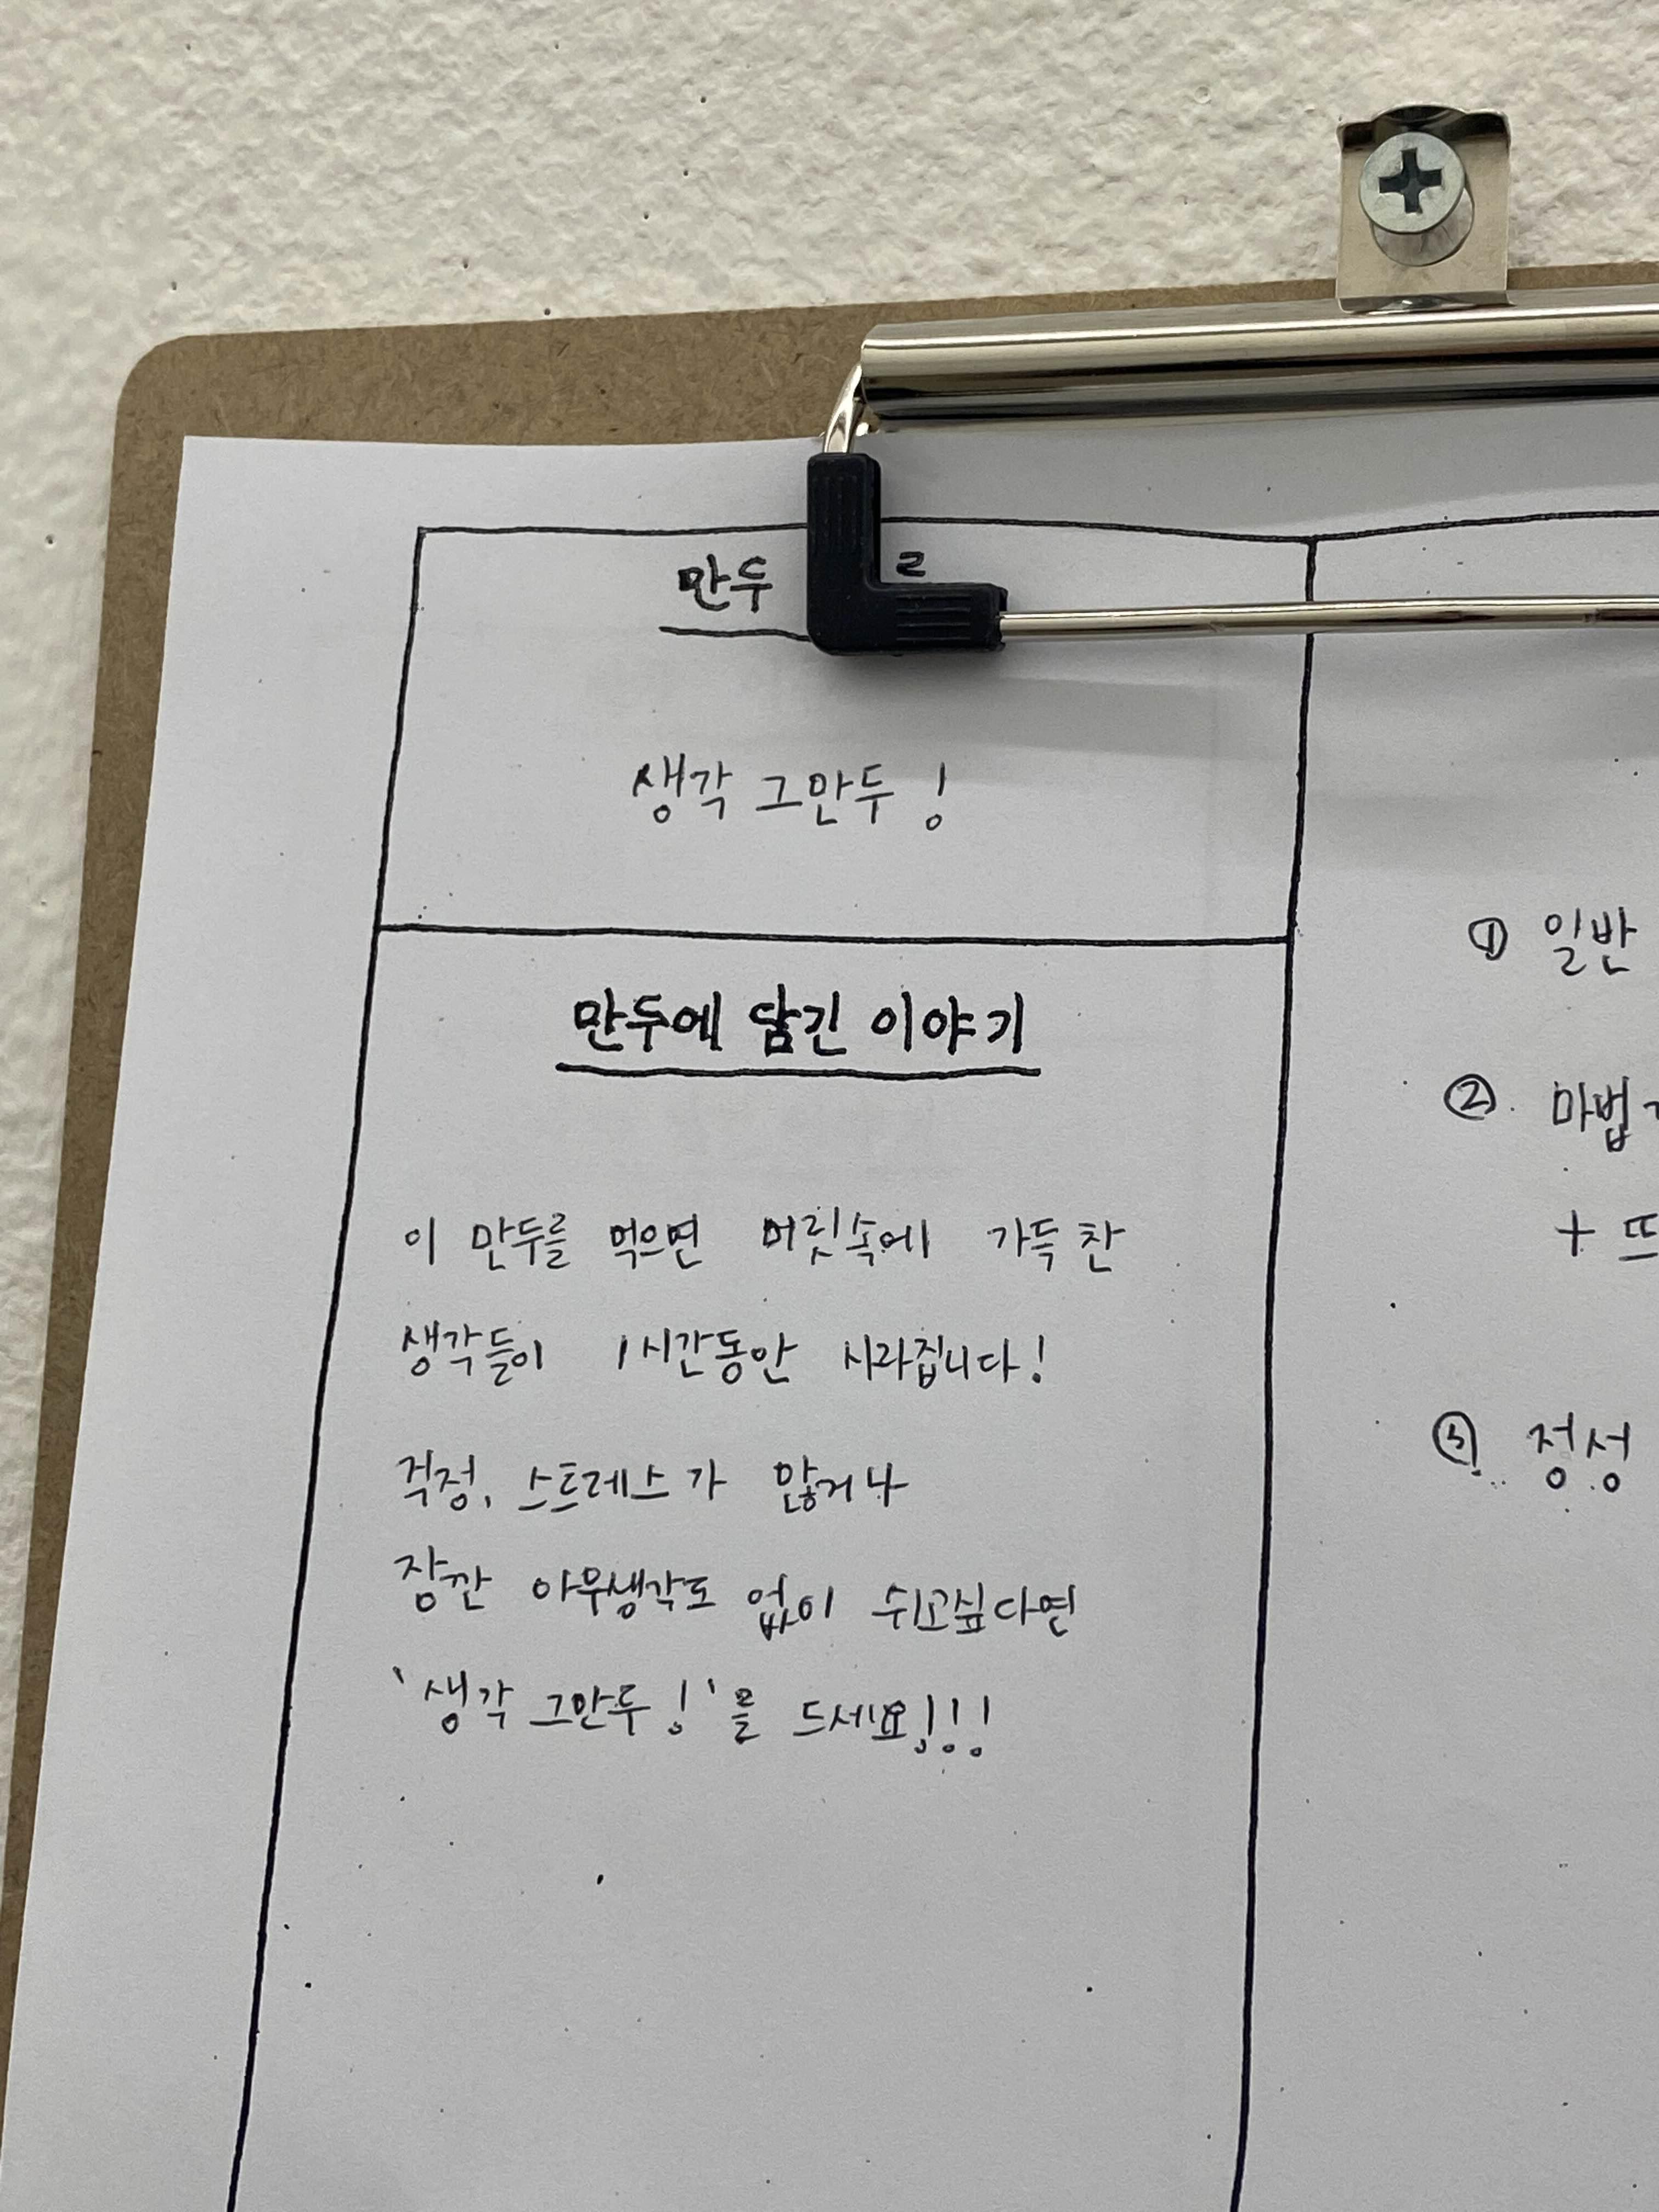 만두
생각 그만두!
만두에 담긴 이야기
이 만두를 먹으면 머릿속에 가득 찬
생각들이 1시간동안 사라집니다!
걱정, 스트레스가 많거나
잠깐 아무생각도 없이 쉬고싶다면
'생각 그만두!'를 드세요!!!
① 일반
② 마법
+
③ 정성